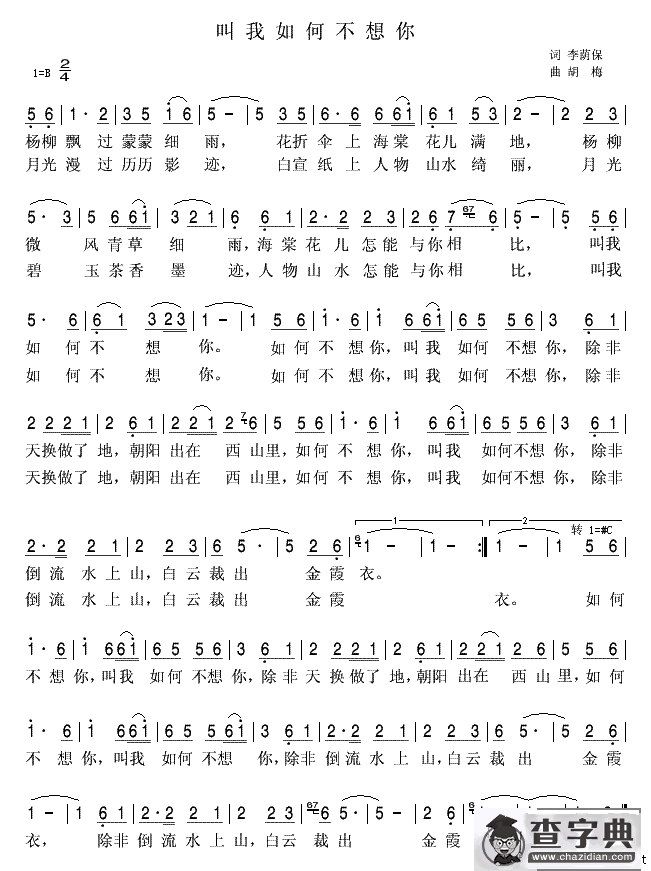 叫我如何不想你
词 李荫保
1=B 2/4
曲 胡 梅
5 6 | 1· 2 | 3 5 3 5 1 6 | 5 - | 5 3 5 | 6 5 6 1 | 5 6 5 3 | 2 - | 2 2 3 |
杨柳 飘 过 蒙蒙 细 雨， 花折 伞 上 海棠 花儿 满 地， 杨 柳
月光 漫 过 历历 影 迹， 白宣 纸 上 人物 山水 绮 丽， 月 光
5· 3 | 5 6 6 1 | 3 2 1 | 6 6 1 | 2· 2 2 3 | 2 6 7 67 6 | 5 - | 5 5 6 |
微 风 青 草 细 雨，海 棠 花 儿 怎能 与你 相 比， 叫我
碧 玉 茶 香 墨 迹，人 物 山 水 怎能 与你 相 比， 叫我
5· 6 | 6 1 3 2 3 | 1 - | 1 5 6 | 1· 6 | 1 6 6 1 | 6 5 5 6 | 3 6 1 |
如 何 不 想 你。 如何 不 想 你，叫我 如何 不想 你， 除非
如 何 不 想 你。 如何 不 想 你，叫我 如何 不想 你， 除非
2 2 2 2 1 | 2 6 1 | 2 2 2 1 | 2 7 6 | 5 5 6 | 1· 6 | 1 6 6 1 | 6 5 5 6 | 3 6 1 |
天换做了 地，朝阳 出在 西 山里，如何 不 想 你，叫我 如何不想 你，除非
天换做了 地，朝阳 出在 西 山里，如何 不 想 你，叫我 如何不想 你，除非
1 2 转 1=#C
2· 2 2 1 | 2 6 1 | 2 2 3 6 | 5· | 5 2 6 | 6 1 - | 1 - :‖ 1 - | 1 5 6 |
倒 流 水 上 山，白云 裁 出 金 霞 衣。
倒 流 水 上 山，白云 裁 出 金 霞 衣。 如何
1· 6 | 1 6 6 1 | 6 5 5 6 | 3 6 1 | 2 2 2 2 1 | 2 6 1 | 2 2 2 1 | 2 6 | 5 5 6 |
不 想 你，叫我 如何 不想 你，除非 天换做了 地，朝阳 出在 西 山里，如何
1· 6 | 1 6 6 1 | 6 5 5 6 | 3 6 1 | 2· 2 2 1 | 2 6 1 | 2 2 3 6 | 5· | 5 2 6 |
不 想 你，叫我 如何 不想 你，除非 倒 流 水 上 山，白云 裁 出 金霞
衣， 除非 倒 流 水 上 山，白云 裁 出 金 霞
查字典
www.chazidian.com
t